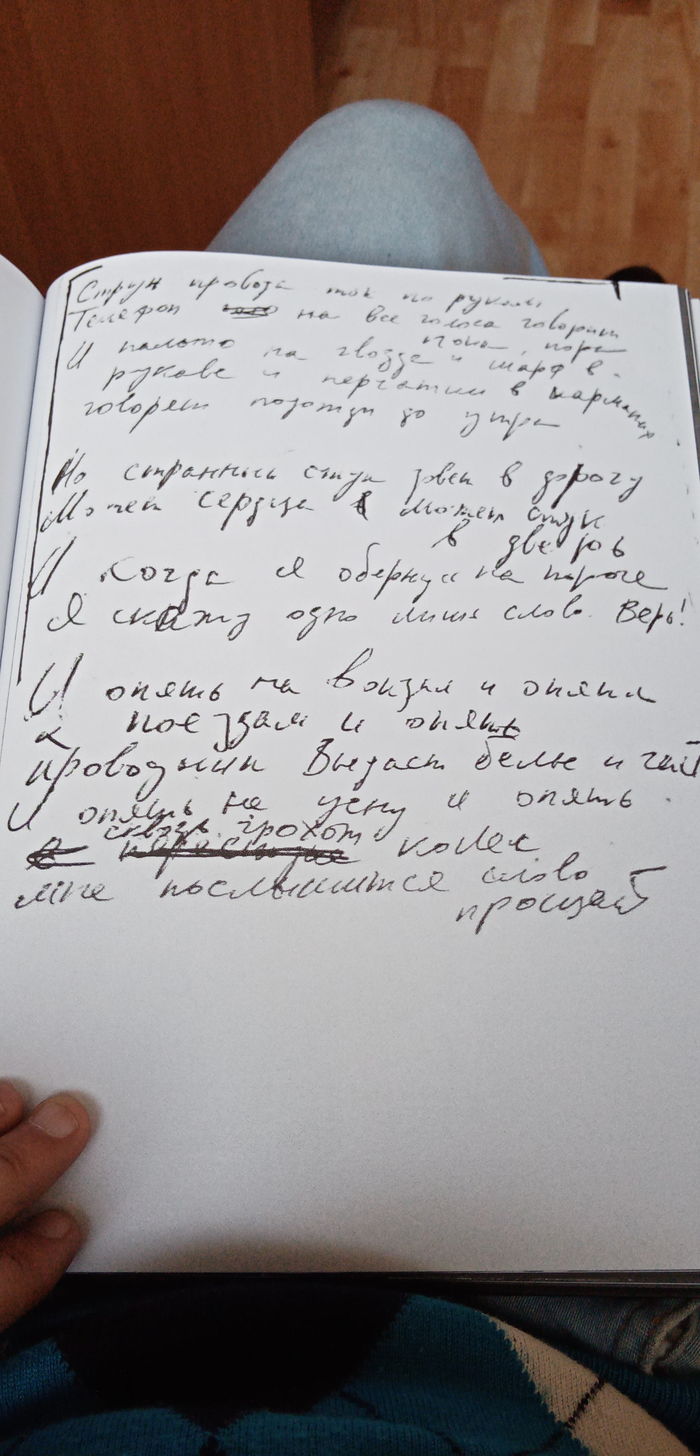 Струн провода ток по рукам
Телефон на все голоса говорит
пока, пора
И пальто на гвозде и шарф в
рукаве и перчатки в карманах
говорят подожди до утра
Но странный стук зовет в дорогу
Может сердца может стук
в дверь
И когда я обернусь на пороге
Я скажу одно лишь слово. Верь!
И опять на вокзал и опять
к поездам и опять
проводник выдаст белье и чай
И опять не усну и опять
сквозь грохот
колес
мне послышится слово
прощай